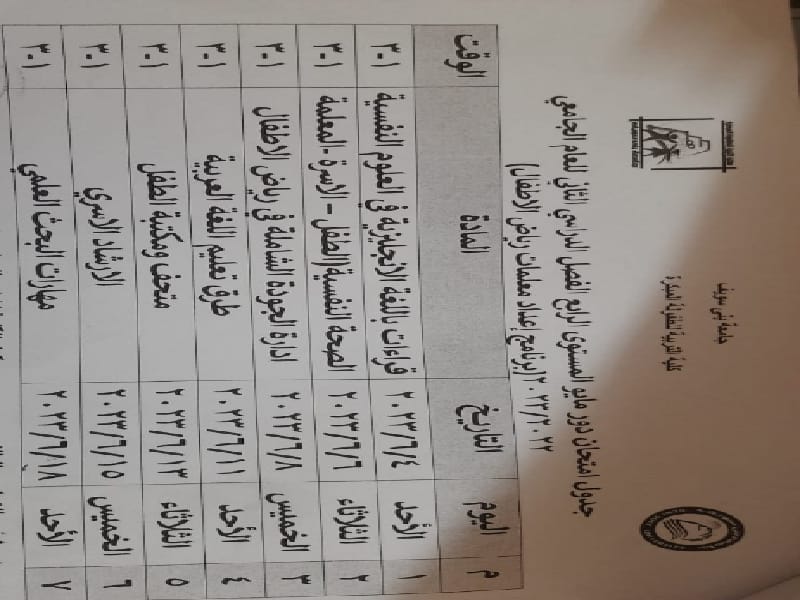 جامعة بني سويف
كلية التربية للطفولة المبكرة
جدول امتحان دور مايو المستوى الرابع الفصل الدراسي الثاني للعام الجامعي
٢٠٢٣/٢٠٢٢ (برنامج إعداد معلمات رياض الاطفال)
م اليوم التاريخ المادة الوقت
١ الأحد ٢٠٢٣/٦/٤ قراءات باللغة الانجليزية في العلوم النفسية ٣-١
٢ الثلاثاء ٢٠٢٣/٦/٦ الصحة النفسية (الطفل – الاسرة -المعلمة ٣-١
٣ الخميس ٢٠٢٣/٦/٨ ادارة الجودة الشاملة في رياض الاطفال ٣-١
٤ الأحد ٢٠٢٣/٦/١١ طرق تعليم اللغة العربية ٣-١
٥ الثلاثاء ٢٠٢٣/٦/١٣ متحف ومكتبة الطفل ٣-١
٦ الخميس ٢٠٢٣/٦/١٥ الارشاد الاسري ٣-١
٧ الأحد ٢٠٢٣/٦/١٨ مهارات البحث العلمي ٣-١